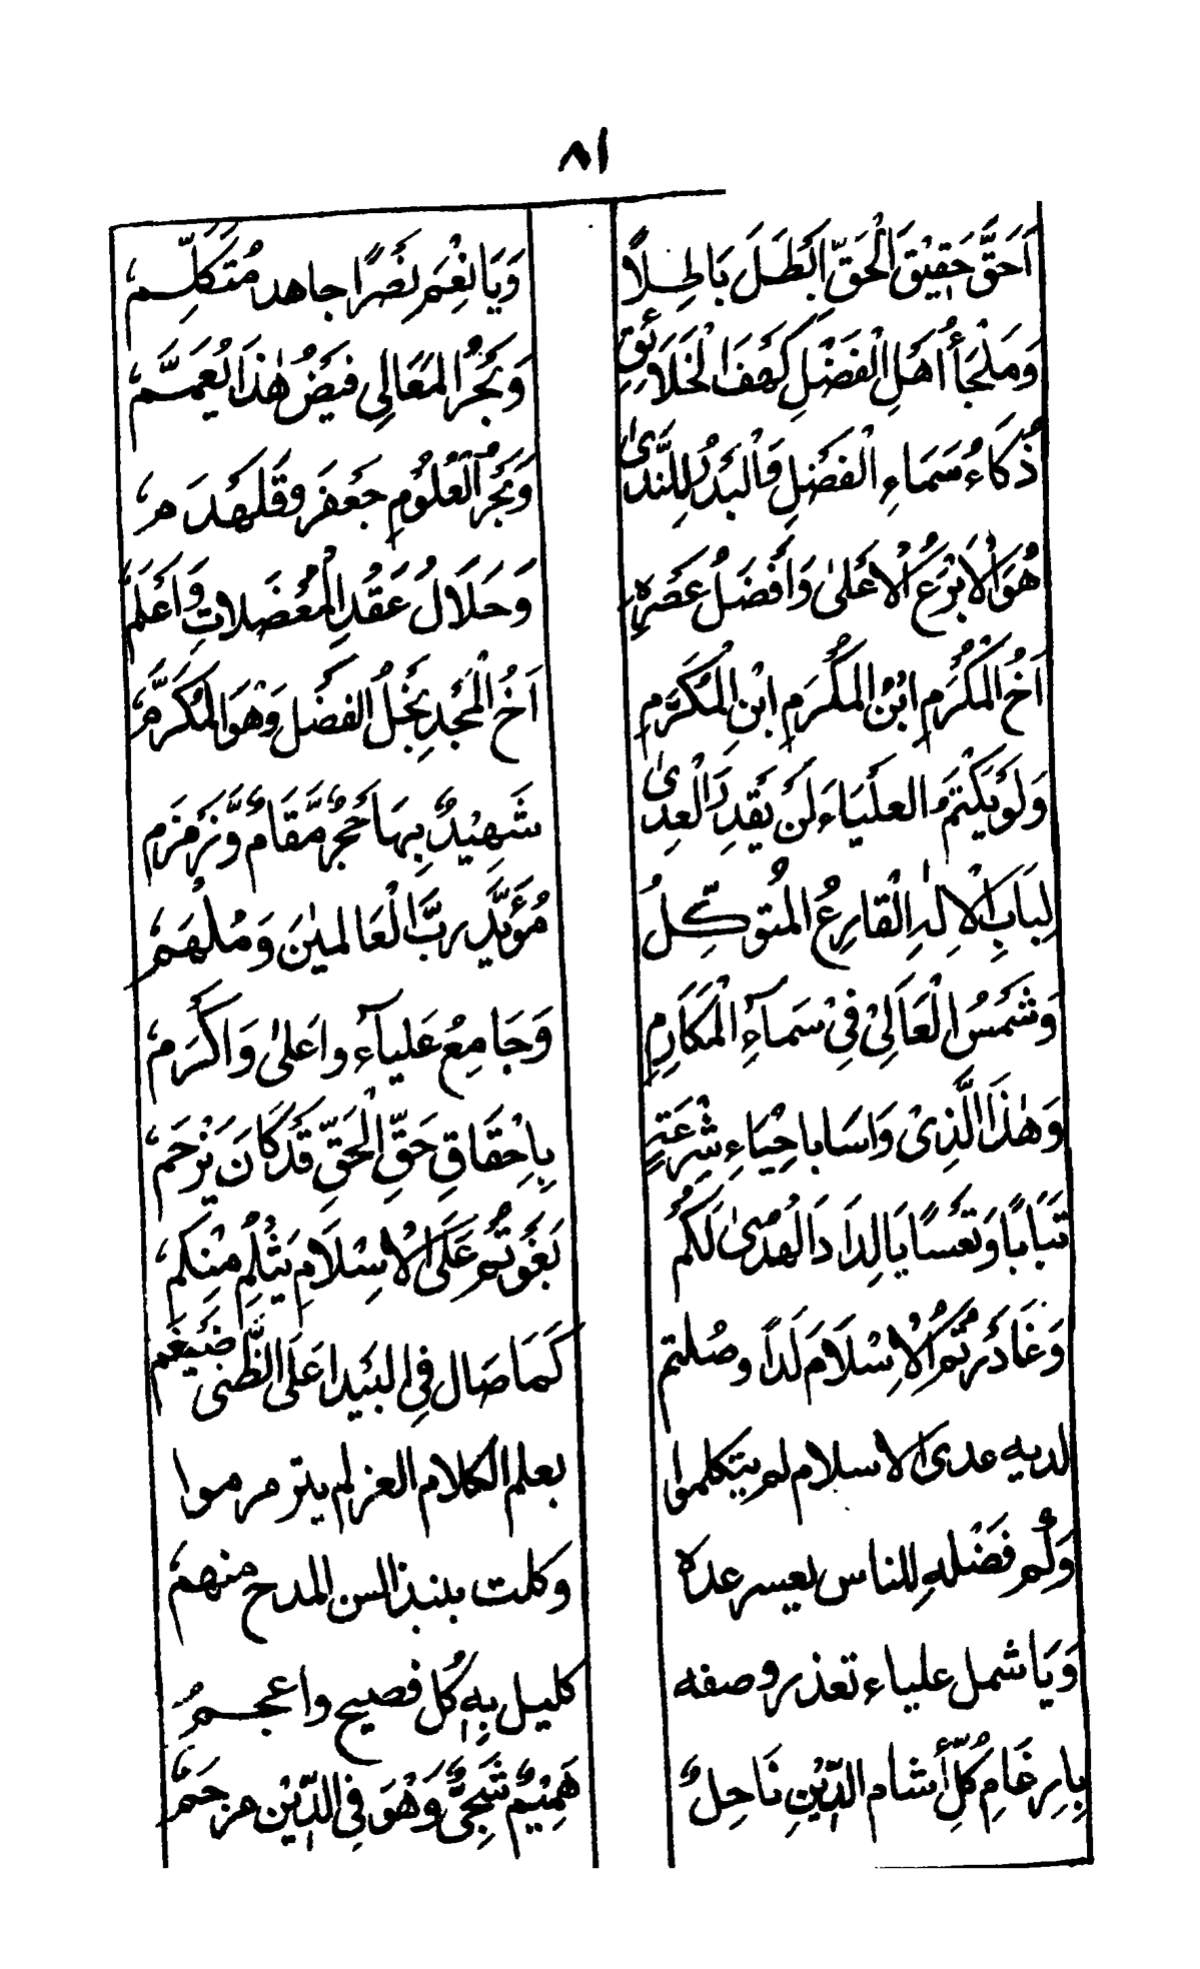 ٨١
اَحَقَّ حَقِيْقَ الْحَقِّ اَبْطَلَ بَاطِلاً وَيَا نِعْمَ نَصْرًا جاهد مُتَكَلِّمٌ
وَمَلْجَأُ اَهْلِ الْفَضْلِ كَهْفَ الْخَلَائِقِ وَبَحْرُ الْمَعَالِي فَيْضُ هٰذَا يُعَمَّمٌ
ذُكَاءُ سَمَاءِ الْفَضْلِ وَالْبَدْرُ لِلنَّدىٰ وَبَحْرُ الْعُلُوْمِ جَعْفَر
هُوَ الْاَبْرَعُ الْاَعْلىٰ وَاَفْضَلُ عَصْرِهٖ وَحَلَالُ عَقْدِ الْمُعْضَلاتِ وَاَعْلَمٌ
اَخُ الْمَكْرُمِ ابْنُ الْمَكْرَمِ ابْنِ الْمُكَرَّمِ اَخُ الْمَجْدِ نَجْلُ الْفَضْلِ وَهْوَ الْمُكَرَّمُ
وَلَوْ يَكْتُم الْعَلْيَاءَ لَنْ يَقْدِرَ الْعِدىٰ شَهِيْدٌ بِهَا حَجَرٌ مَّقَامٌ وَّزَمْزَم
لِبَابِ الْاِلٰهِ الْقارِعُ الْمُتَوَكِّلُ مُؤَيَّد ربُّ الْعَالمِيْنَ وَمُلْهَمٌ
وَشَمْسُ الْعَالِيْ فِيْ سَمَآءِ الْمَكَارِمِ وَجَامِعُ عَلياَءِ واَعلىٰ وَاَكْرَم
وَهٰذَا الَّذِىْ وَاسَا باحْيَاءِ شِرْعَتِهٖ بِاِحْقَاقِ حَقِّ الْحَقِّ قَدْ كَانَ يَرْحَمُ
تَبَابًا وَتَعْسًا يَا لِدَادَ الْهُدىٰ لَكُمْ بَغَوْتُمْ عَلَى الْاِسْلَامِ يَثْلِمُ مِنْكم
وَغَادَرْتُمُ الْاِسْلَامَ لَدًا وصُلتم كَمَا صَال فِي الْبَيْدا عَلَى الظَّبْى ضَيْغَم
لديه عدى الاسلام لم يتكلموا بعلم الكلام العز لم يترمرموا
وَلُم فَضْلهِ للناس يعسر عده وكلت بنبذ السن المدح منهم
وَيَا شمل علياء تعذر وصفه كليل بِهِ كُل فصيح واعجمُ
بِاِرْغَامِ كُلِّ الدِّيْنِ نَاحِلٌ وَهُوَ فِي الدِّيْنِ